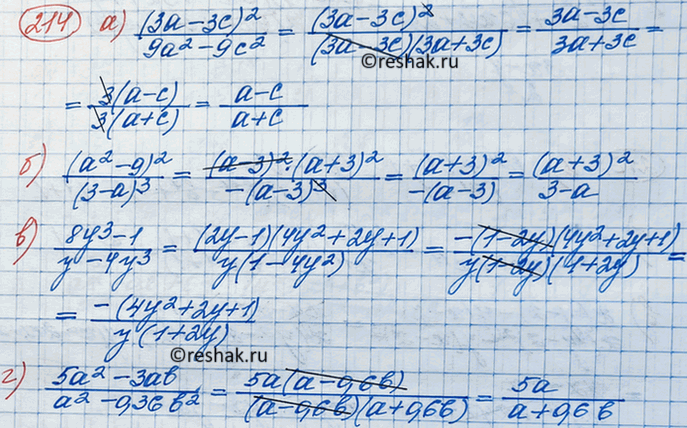 214 а) (3a-3c)²/(9a²-9c²) = (3a-3c)²/((3a-3c)(3a+3c)) = (3a-3c)/(3a+3c) =
©reshak.ru
= 3(a-c)/3(a+c) = (a-c)/(a+c)
б) (a²-9)²/(3-a)³ = (a-3)²·(a+3)²/-(a-3)³ = (a+3)²/-(a-3) = (a+3)²/(3-a)
в) (8y³-1)/(y-4y³) = (2y-1)(4y²+2y+1)/y(1-4y²) = -(1-2y)(4y²+2y+1)/y(1-2y)(1+2y) =
= -(4y²+2y+1)/y(1+2y)
©reshak.ru
г) (5a²-3ab)/(a²-0,36b²) = 5a(a-0,6b)/(a-0,6b)(a+0,6b) = 5a/(a+0,6b)